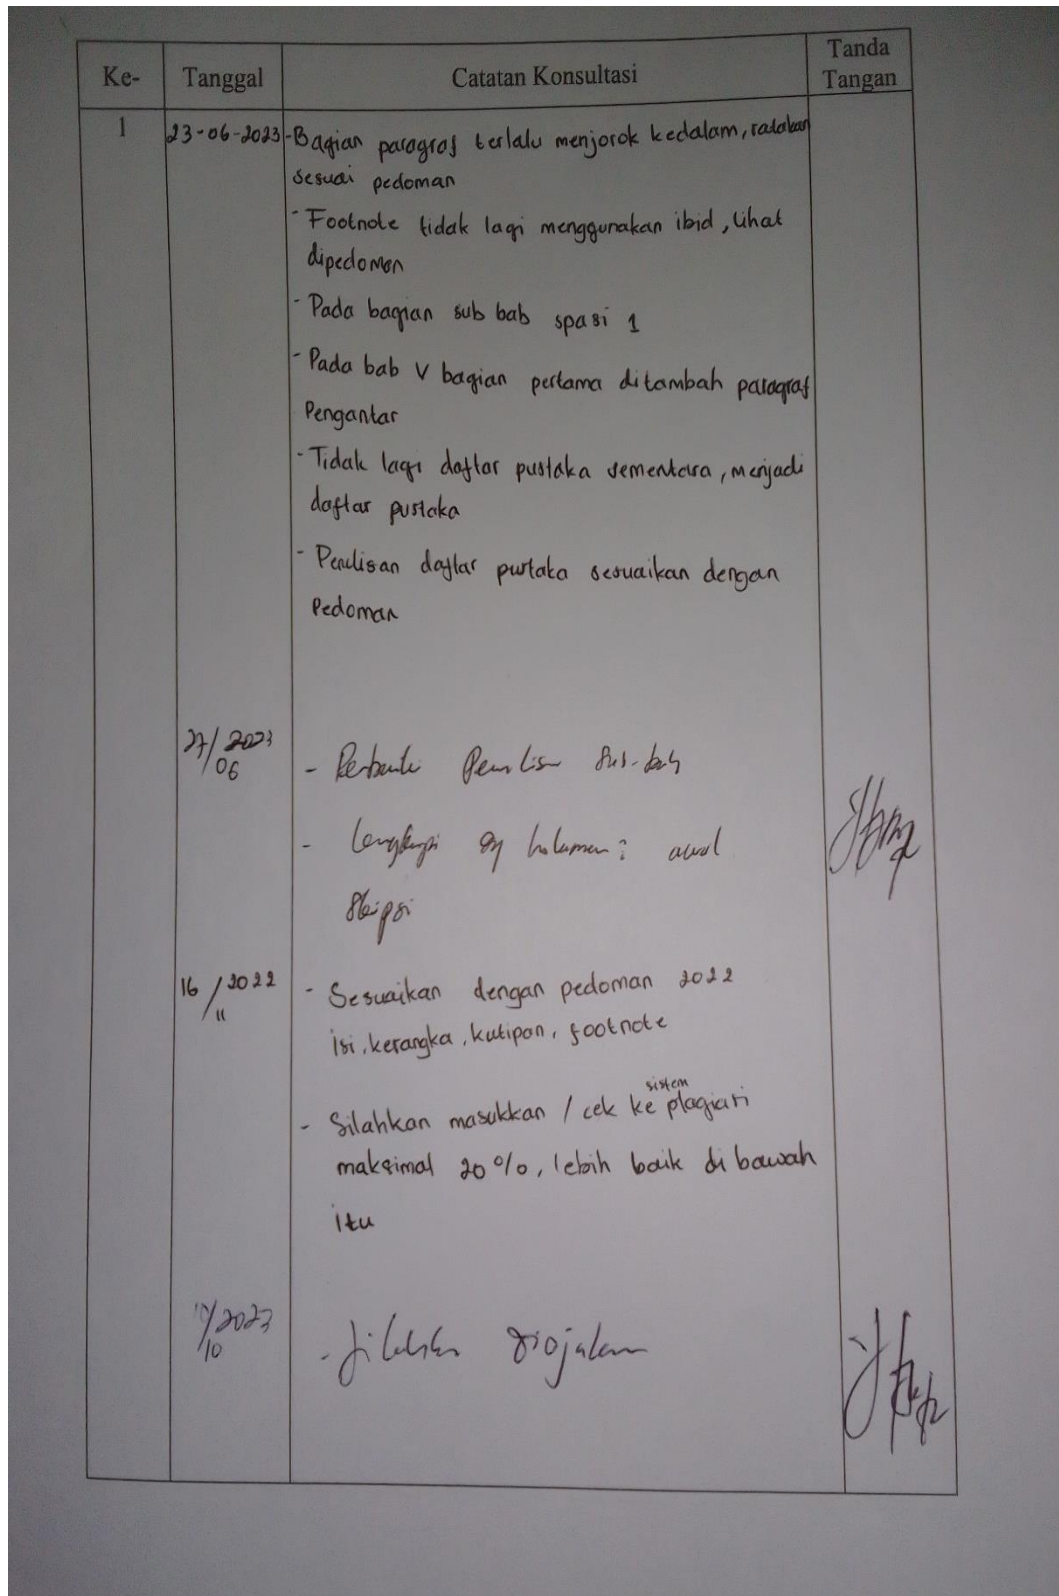 Ke-
Tanggal
Catatan Konsultasi
Tanda
Tangan
1
23-06-2023
- Bagian paragraf terlalu menjorok kedalam, ratakan
sesuai pedoman
- Footnote tidak lagi menggunakan ibid, lihat
dipedoman
- Pada bagian sub bab spasi 1
- Pada bab V bagian pertama ditambah paragraf
Pengantar
- Tidak lagi daftar pustaka sementara, menjadi
daftar pustaka
- Penulisan daftar pustaka sesuaikan dengan
Pedoman
27/2023
06
- Penulisan Sub-bab
- Lengkapi halaman awal
Skripsi
16/2022
11
- Sesuaikan dengan pedoman 2022
isi, kerangka, kutipan, footnote
sistem
- Silahkan masukkan / cek ke plagiari
maksimal 20%, lebih baik di bawah
itu
/2023
10